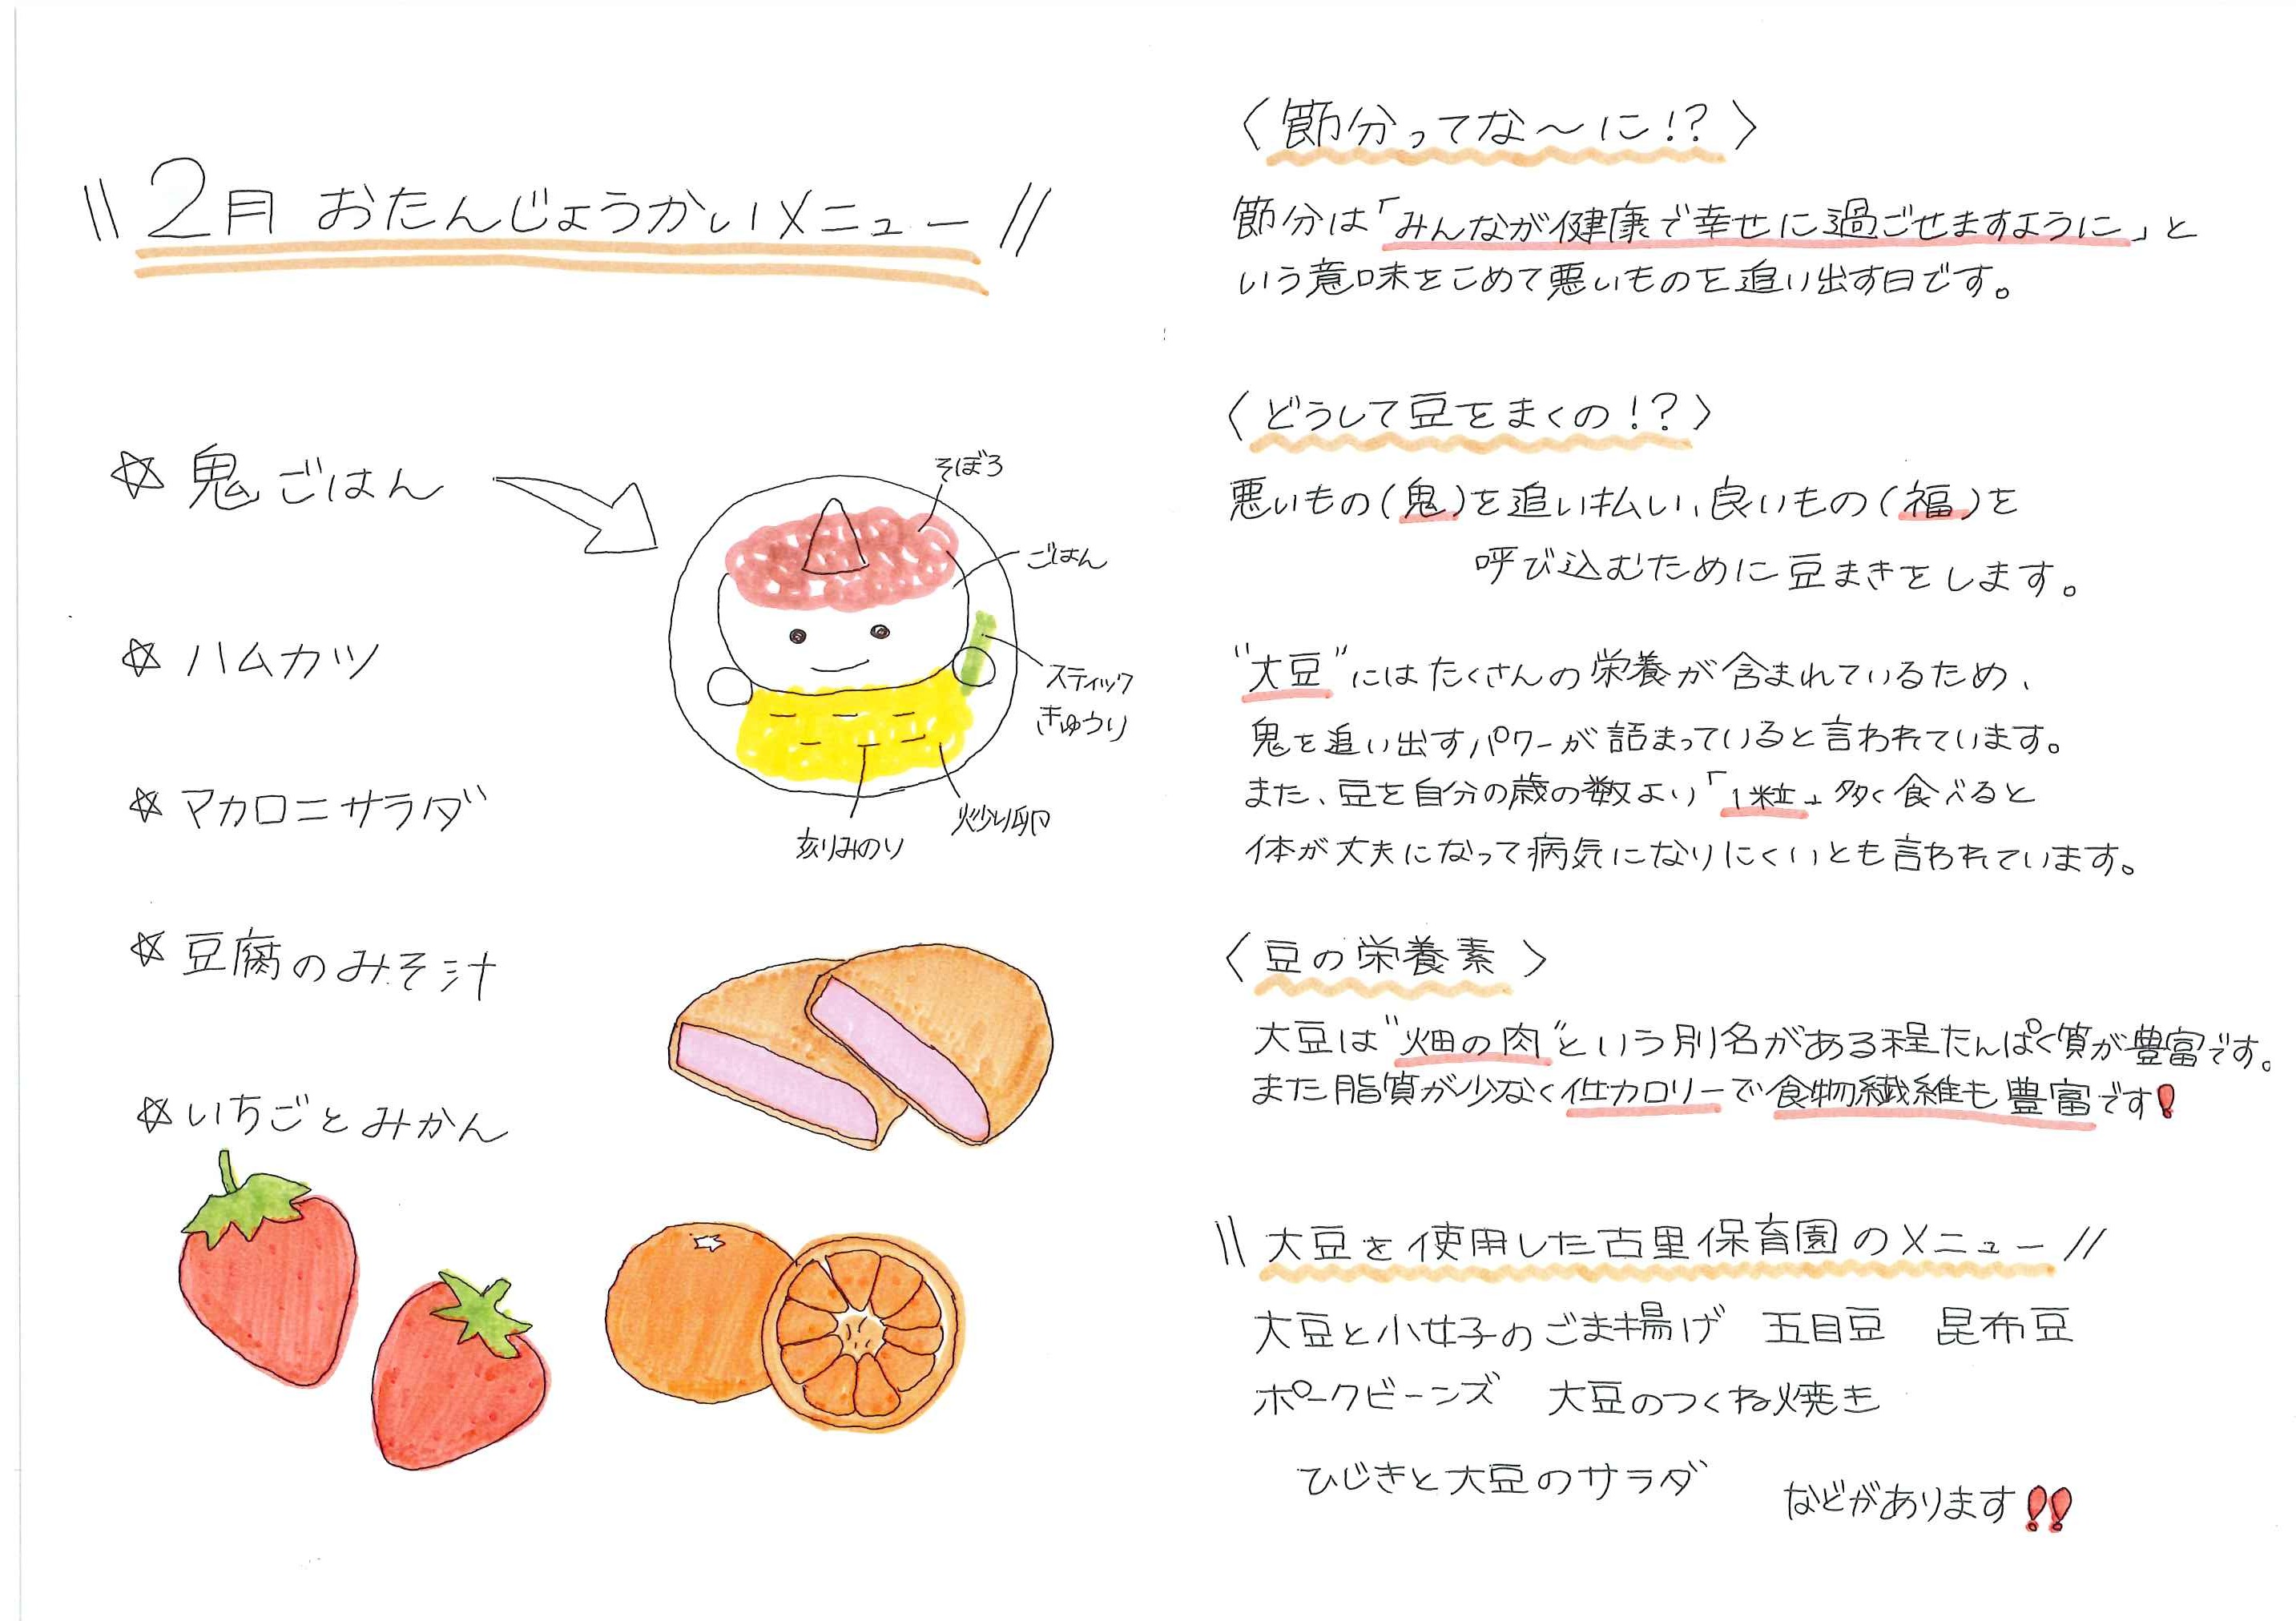 \\ 2月 おたんじょうかいメニュー //
☆ 鬼ごはん
そぼろ
ごはん
スティック
きゅうり
炒り卵
刻みのり
☆ ハムカツ
☆ マカロニサラダ
☆ 豆腐のみそ汁
☆ いちごとみかん
〈節分ってな〜に!?〉
節分は「みんなが健康で幸せに過ごせますように」と
いう意味をこめて悪いものを追い出す日です。
〈どうして豆をまくの!?〉
悪いもの(鬼)を追い払い、良いもの(福)を
呼び込むために豆まきをします。
"大豆"にはたくさんの栄養が含まれているため、
鬼を追い出すパワーが詰まっていると言われています。
また、豆を自分の歳の数より「1粒」多く食べると
体が丈夫になって病気になりにくいとも言われています。
〈豆の栄養素〉
大豆は"畑の肉"という別名がある程たんぱく質が豊富です。
また脂質が少なく低カロリーで食物繊維も豊富です!
\\ 大豆を使用した古里保育園のメニュー //
大豆と小女子のごま揚げ 五目豆 昆布豆
ポークビーンズ 大豆のつくね焼き
ひじきと大豆のサラダ などがあります!!